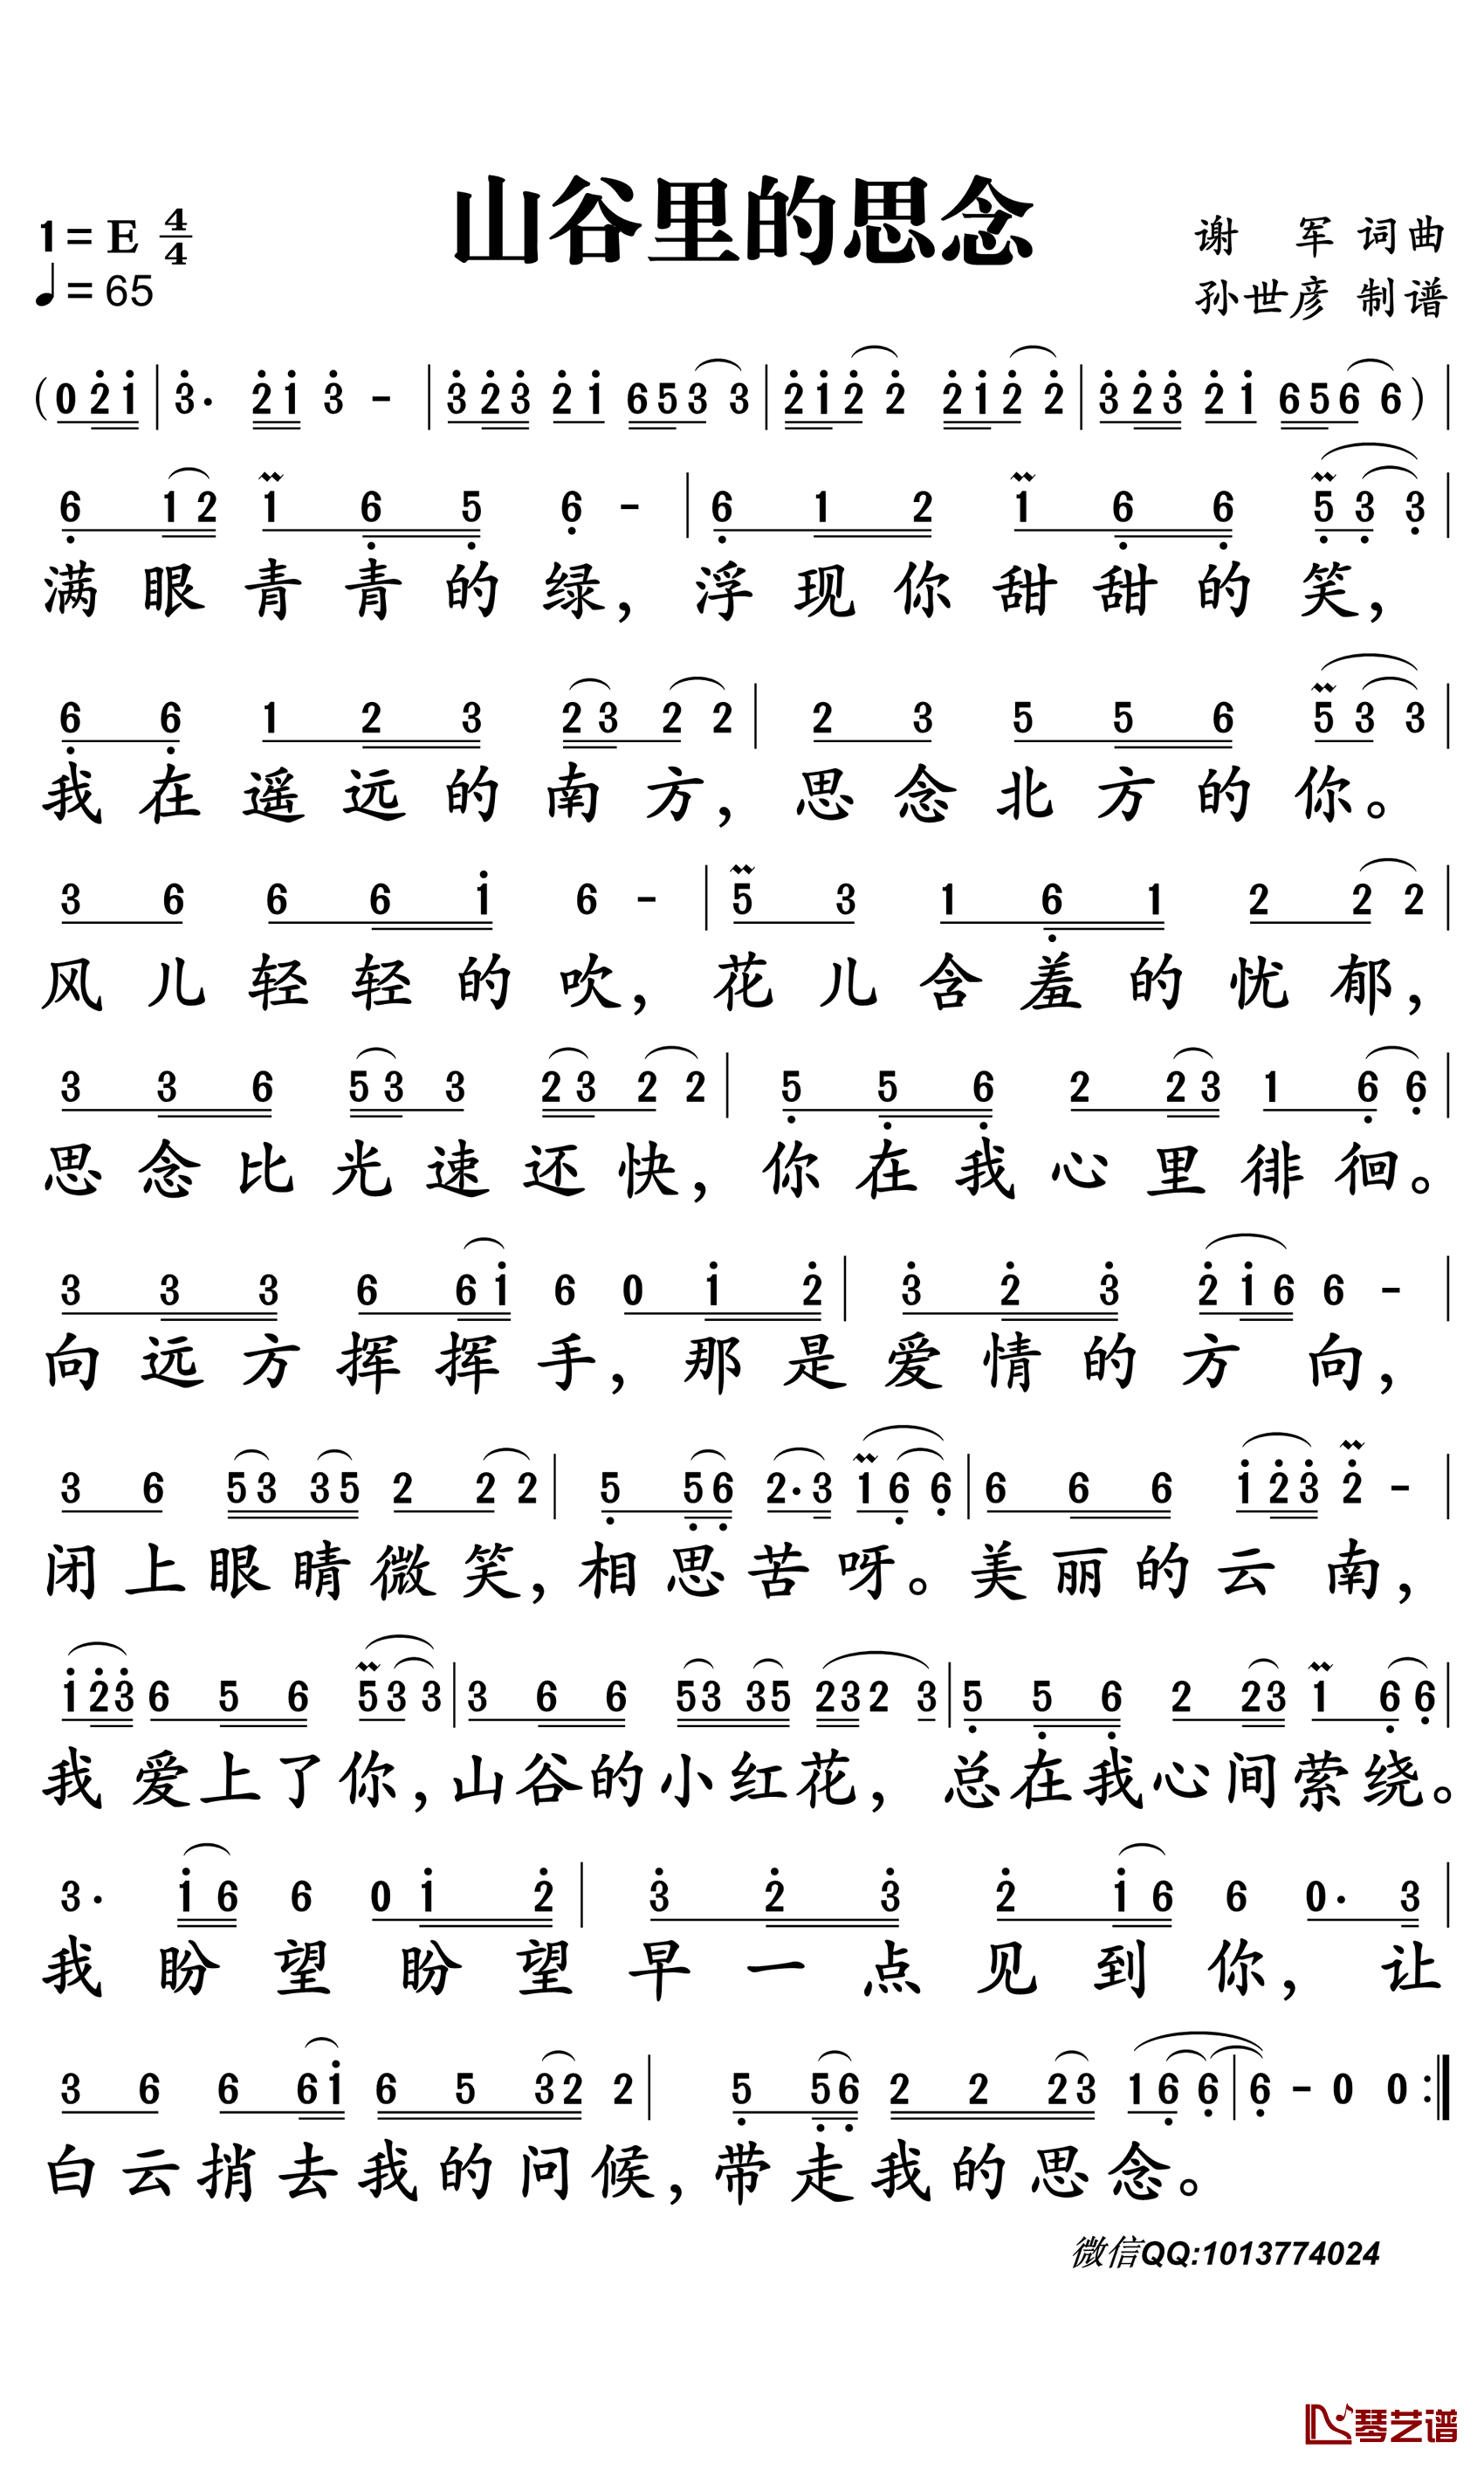 山谷里的思念
1= E 4/4
♩= 65
谢 军 词曲
孙世彦 制谱
(0 2 1 | 3. 2 1 3 - | 3 2 3 2 1 6 5 3 3 | 2 1 2 2 2 1 2 2 | 3 2 3 2 1 6 5 6 6 ) |
6 1 2 1 6 5 6 - | 6 1 2 1 6 6 5 3 3 |
满 眼 青 青 的 绿, 浮 现 你 甜 甜 的 笑,
6 6 1 2 3 2 3 2 2 | 2 3 5 5 6 5 3 3 |
我 在 遥 远 的 南 方, 思 念 北 方 的 你。
3 6 6 6 1 6 - | 5 3 1 6 1 2 2 2 |
风 儿 轻 轻 的 吹, 花 儿 含 羞 的 忧 郁,
3 3 6 5 3 3 2 3 2 2 | 5 5 6 2 2 3 1 6 6 |
思 念 比 光 速 还 快, 你 在 我 心 里 徘 徊。
3 3 3 6 6 1 6 0 1 2 | 3 2 3 2 1 6 6 - |
向 远 方 挥 挥 手, 那 是 爱 情 的 方 向,
3 6 5 3 3 5 2 2 2 | 5 5 6 2. 3 1 6 6 | 6 6 6 1 2 3 2 - |
闭 上 眼 睛 微 笑, 相 思 苦 呀。美 丽 的 云 南,
1 2 3 6 5 6 5 3 3 | 3 6 6 5 3 3 5 2 3 2 3 | 5 5 6 2 2 3 1 6 6 |
我 爱 上 了 你, 山 谷 的 小 红 花, 总 在 我 心 间 萦 绕。
3. 1 6 6 0 1 2 | 3 2 3 2 1 6 6 0. 3 |
我 盼 望 盼 望 早 一 点 见 到 你, 让
3 6 6 6 1 6 5 3 2 2 | 5 5 6 2 2 2 3 1 6 6 | 6 - 0 0 :|
白 云 捎 去 我 的 问 候, 带 走 我 的 思 念。
微信QQ:1013774024
琴艺谱